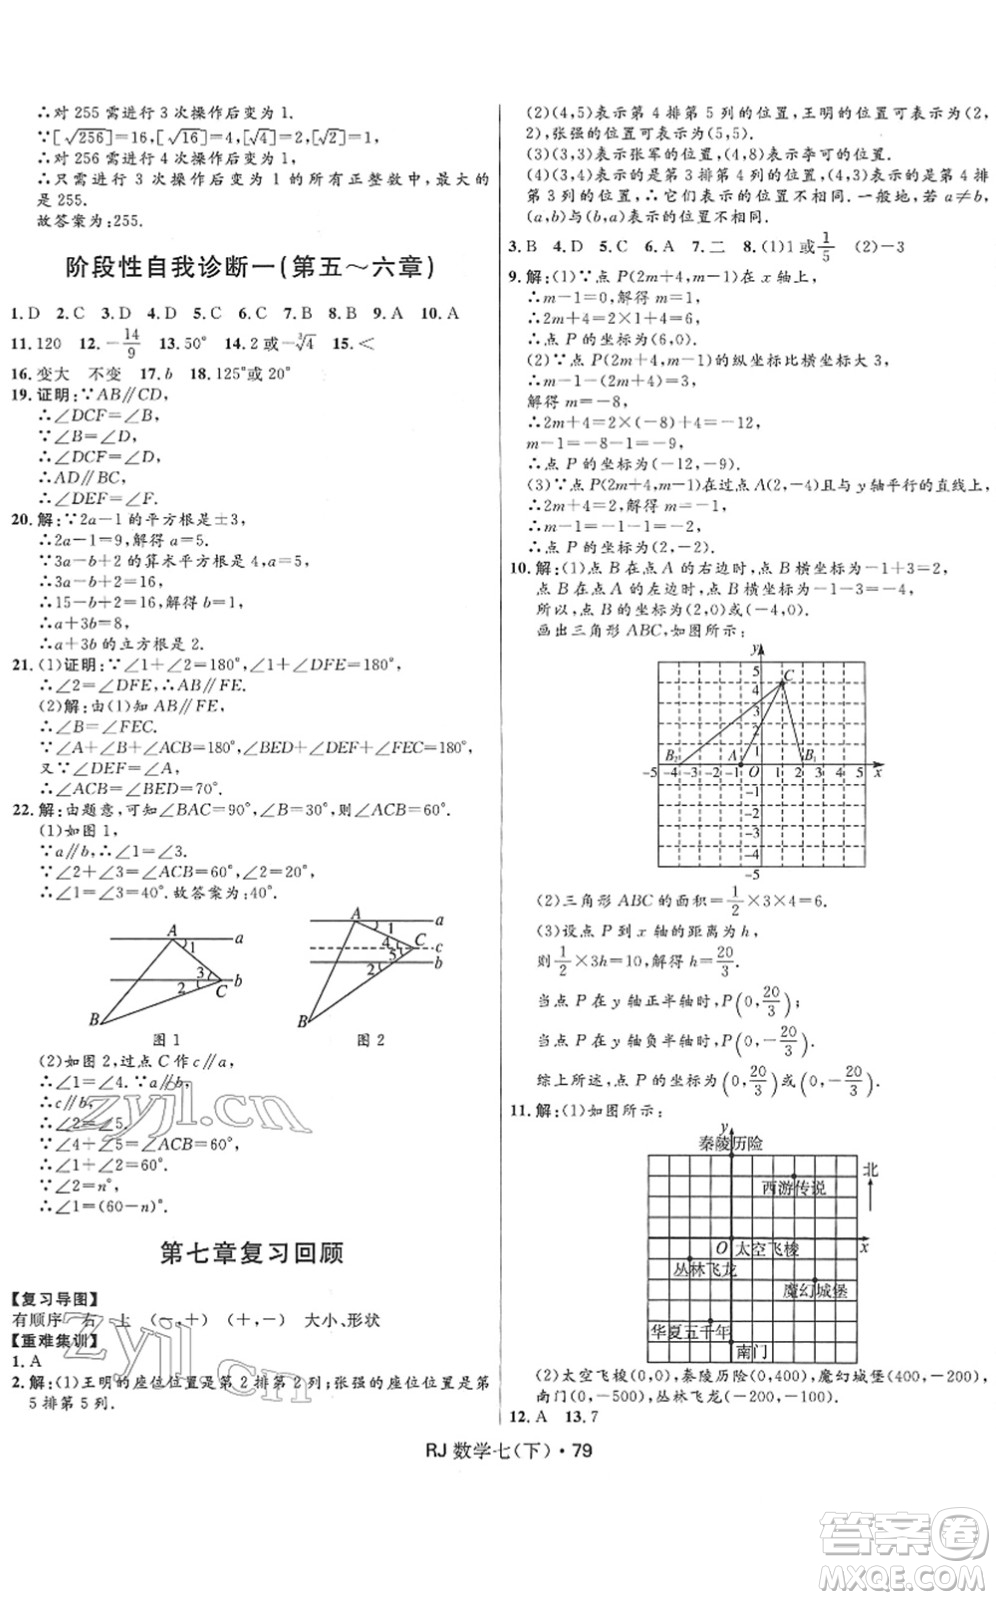 ∴对 255 需进行 3 次操作后变为 1.
∵[√256]=16,[√16]=4,[√4]=2,[√2]=1,
∴对 256 需进行 4 次操作后变为 1.
∴只需进行 3 次操作后变为 1 的所有正整数中,最大的
是 255.
故答案为:255.
阶段性自我诊断一(第五～六章)
1.D 2.C 3.D 4.D 5.C 6.C 7.B 8.B 9.A 10.A
11.120 12.-14/9 13.50° 14.2 或-∛4 15.<
16.变大 不变 17.b 18.125°或 20°
19.证明:∵AB∥CD,
∴∠DCF=∠B,
∵∠B=∠D,
∴∠DCF=∠D,
∴AD∥BC,
∴∠DEF=∠F.
20.解:∵2a-1 的平方根是±3,
∴2a-1=9,解得 a=5.
∵3a-b+2 的算术平方根是 4,a=5,
∴3a-b+2=16,
∴15-b+2=16,解得 b=1,
∴a+3b=8,
∴a+3b 的立方根是 2.
21.(1)证明:∵∠1+∠2=180°,∠1+∠DFE=180°,
∴∠2=∠DFE,∴AB∥FE.
(2)解:由(1)知 AB∥FE,
∴∠B=∠FEC.
∵∠A+∠B+∠ACB=180°,∠BED+∠DEF+∠FEC=180°,
又∵∠A=∠DEF,
∴∠ACB=∠BED=70°.
22.解:由题意,可知∠BAC=90°,∠B=30°,则∠ACB=60°.
(1)如图 1,
∵a∥b,∴∠1=∠3.
∵∠2+∠3=∠ACB=60°,∠2=20°,
∴∠1=∠3=40°.故答案为:40°.
A 1 a
3 b
2 C
B
图 1
A 1 a
4 C c
5 b
2
B
图 2
(2)如图 2,过点 C 作 c∥a,
∴∠1=∠4.∵a∥b,
∴c∥b,
∴∠2=∠5.
∵∠4+∠5=∠ACB=60°,
∴∠1+∠2=60°.
∵∠2=n°,
∴∠1=(60-n)°.
第七章复习回顾
【复习导图】
有顺序 右 上 (-,+) (+,-) 大小、形状
【重难集训】
1.A
2.解:(1)王明的座位位置是第 2 排第 2 列;张强的座位位置是第
5 排第 5 列.
(2)(4,5)表示第 4 排第 5 列的位置,王明的位置可表示为(2,
2),张强的位置可表示为(5,5).
(3)(3,3)表示张军的位置,(4,8)表示李可的位置.
(4)(3,4)表示的是第 3 排第 4 列的位置,(4,3)表示的是第 4 排
第 3 列的位置,∴它们表示的位置不相同.一般地,若 a≠b,
(a,b)与(b,a)表示的位置不相同.
3.B 4.D 5.C 6.A 7.二 8.(1)1 或1/5 (2)-3
9.解:(1)∵点 P(2m+4,m-1)在 x 轴上,
∴m-1=0,解得 m=1,
∴2m+4=2×1+4=6,
∴点 P 的坐标为(6,0).
(2)∵点 P(2m+4,m-1)的纵坐标比横坐标大 3,
∴m-1-(2m+4)=3,
解得 m=-8,
∴2m+4=2×(-8)+4=-12,
m-1=-8-1=-9,
∴点 P 的坐标为(-12,-9).
(3)∵点 P(2m+4,m-1)在过点 A(2,-4)且与 y 轴平行的直线上,
∴2m+4=2,解得 m=-1,
∴m-1=-1-1=-2,
∴点 P 的坐标为(2,-2).
10.解:(1)点 B 在点 A 的右边时,点 B 横坐标为-1+3=2,
点 B 在点 A 的左边时,点 B 横坐标为-1-3=-4,
所以,点 B 的坐标为(2,0)或(-4,0).
画出三角形 ABC,如图所示:
y
5
4 C
3
2
1
B₂ A B₁
-5 -4 -3 -2 -1 O 1 2 3 4 5 x
-1
-2
-3
-4
-5
(2)三角形 ABC 的面积=1/2×3×4=6.
(3)设点 P 到 x 轴的距离为 h,
则1/2×3h=10,解得 h=20/3.
当点 P 在 y 轴正半轴时,P(0,20/3);
当点 P 在 y 轴负半轴时,P(0,-20/3).
综上所述,点 P 的坐标为(0,20/3)或(0,-20/3).
11.解:(1)如图所示:
y
秦陵历险
北
西游传说
O 太空飞梭 x
丛林飞龙
魔幻城堡
华夏五千年
南门
(2)太空飞梭(0,0),秦陵历险(0,400),魔幻城堡(400,-200),
南门(0,-500),丛林飞龙(-200,-100).
12.A 13.7
RJ 数学七(下)·79
zyjl.cn
zyjl.cn
答案卷
MXQE.COM